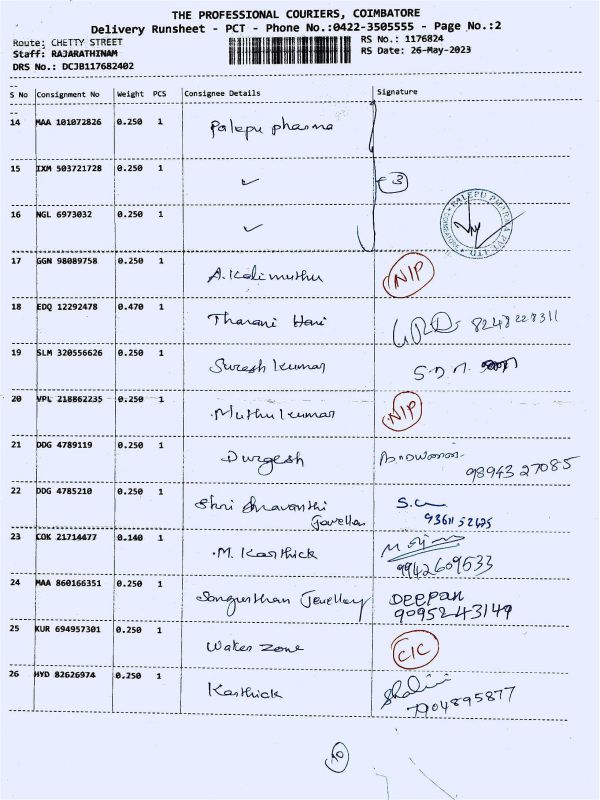 THE PROFESSIONAL COURIERS, COIMBATORE
Delivery Runsheet - PCT - Phone No.:0422-3505555 - Page No.:2
Route: CHETTY STREET RS No.: 1176824
Staff: RAJARATHINAM RS Date: 26-May-2023
DRS No.: DCJB117682402
S No Consignment No Weight PCS Consignee Details Signature
14 MAA 101072826 0.250 1 Palepu pharma
15 IXM 503721728 0.250 1 ✓ 3
16 NGL 6973032 0.250 1 ✓
17 GGN 98089758 0.250 1 A.Kalimuthu N/P
18 EDQ 12292478 0.470 1 Tharani Hari 8248228311
19 SLM 320556626 0.250 1 Suresh kumar
20 VPL 218862235 0.250 1 Muthukumar N/P
21 DDG 4789119 0.250 1 Durgesh
98943 27085
22 DDG 4785210 0.250 1 Shri Shravanthi
Jewellers
23 COK 21714477 0.140 1 M. Karthick
9942609533
24 MAA 860166351 0.250 1 Jewellery DEEPAN
9095243149
25 KUR 694957301 0.250 1 Water Zone C/C
26 HYD 82626974 0.250 1 Karthick Shalini
7904895877
10